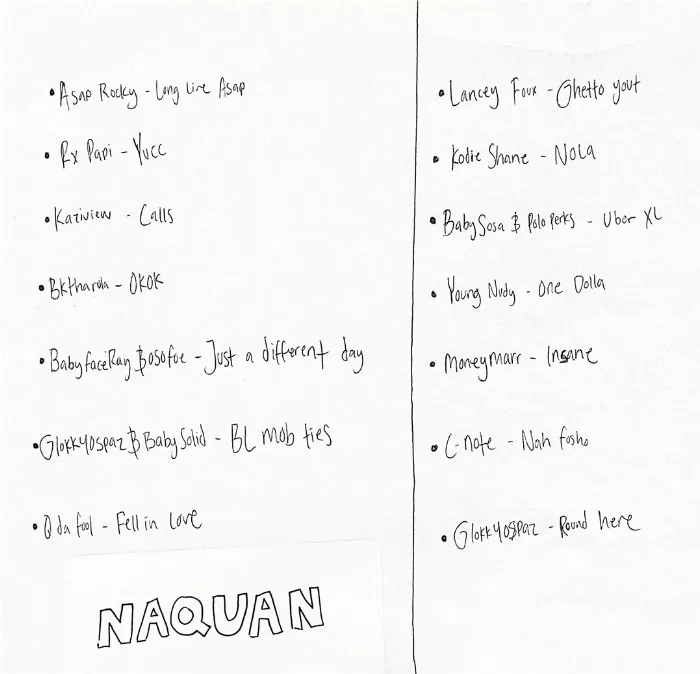 • Asap Rocky - Long Live Asap
• Rx Papi - Yucc
• Kativiem - Calls
• Bktharda - OKOK
• BabyfaceRay $ osofoe - Just a different day
• Glokk40spaz $ BabySolid - BL mob ties
• Q da fool - Fell in Love
NAQUAN
• Lancey Foux - Ghetto yout
• Kodie Shane - NOLA
• BabySosa $ Polo Perks - Uber XL
• Young Nudy - One Dolla
• Moneymarr - Insane
• C-note - Nah fosho
• Glokk40$paz - Round here